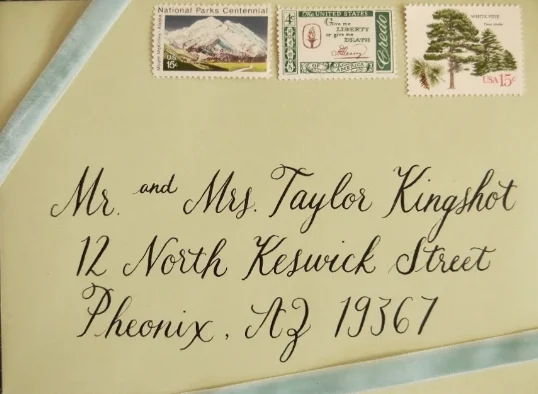 National Parks Centennial
USA
15c
4c
THE UNITED STATES
Give me
LIBERTY
or give me
DEATH
P Henry
Credo
OF AMERICA
WHITE PINE
USA 15c
Mr. and Mrs. Taylor Kingshot
12 North Keswick Street
Pheonix, AZ 19367